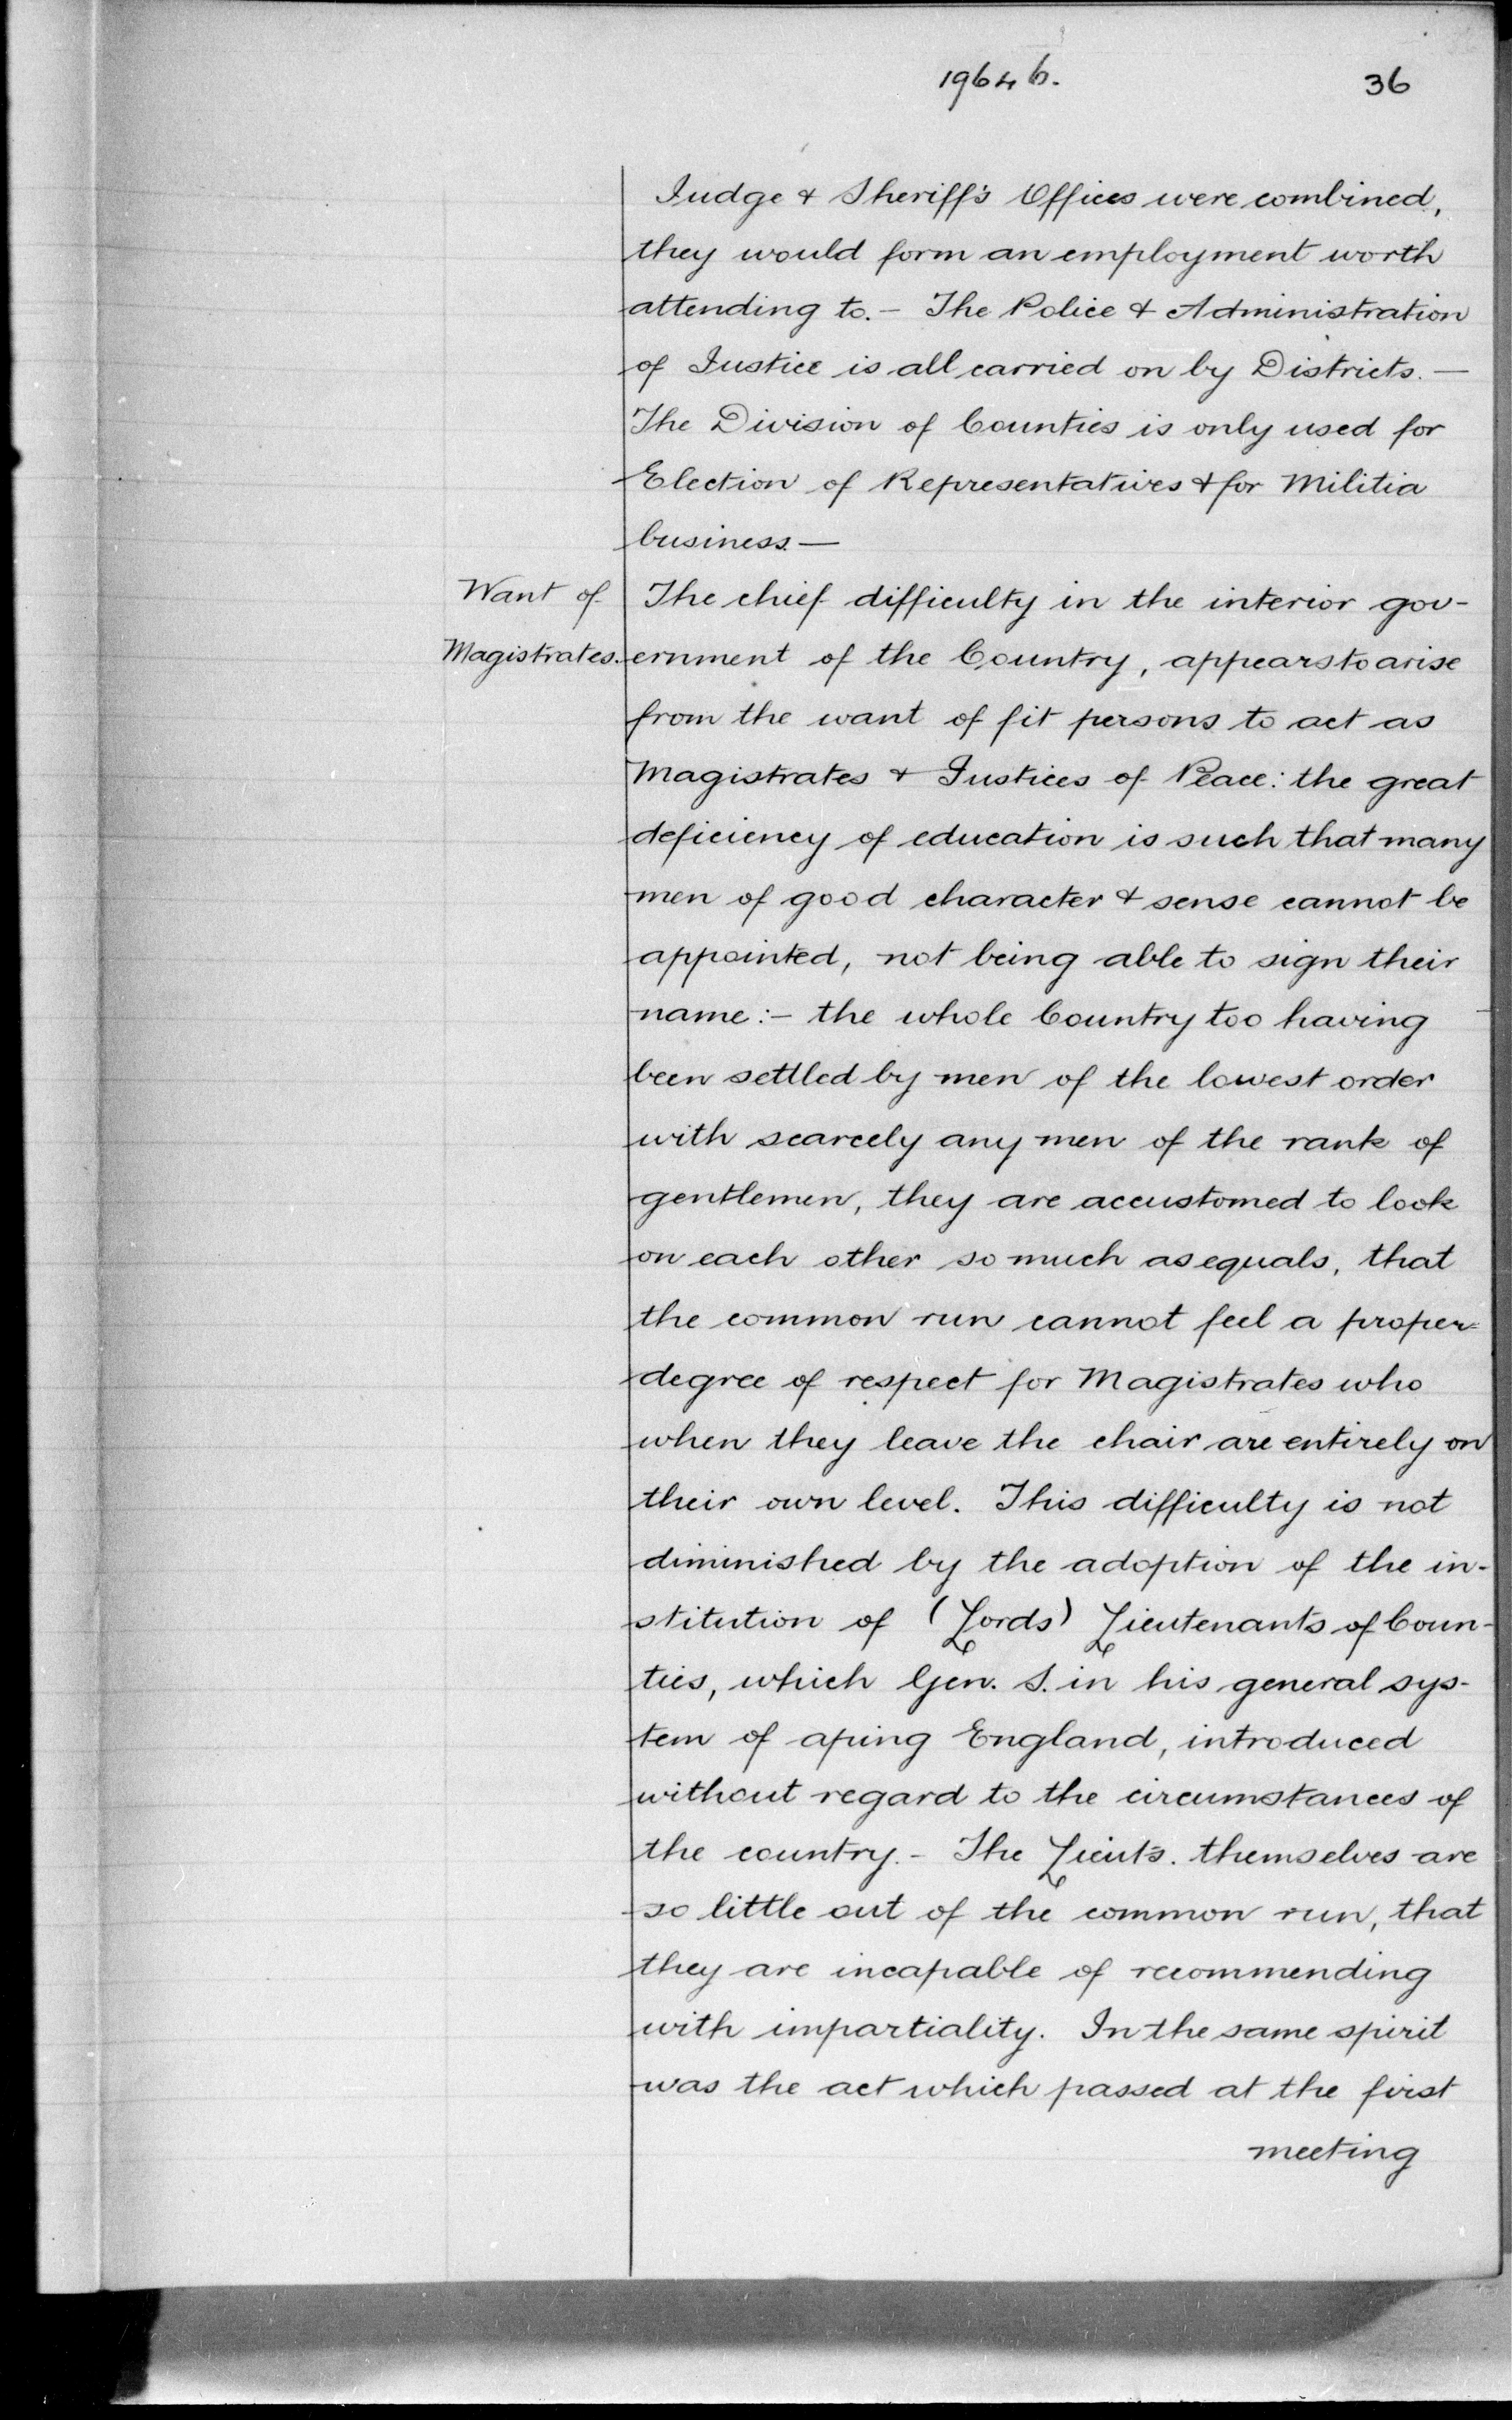 19646.
36
Judge & Sheriff's Offices were combined,
they would form an employment worth
attending to. - The Police & Administration
of Justice is all carried on by Districts. —
The Division of Counties is only used for
Election of Representatives & for Militia
business —
Want of
Magistrates.
The chief difficulty in the interior gov-
ernment of the Country, appears to arise
from the want of fit persons to act as
Magistrates & Justices of Peace: the great
deficiency of education is such that many
men of good character & sense cannot be
appointed, not being able to sign their
name:- the whole Country too having
been settled by men of the lowest order
with scarcely any men of the rank of
gentlemen, they are accustomed to look
on each other so much as equals, that
the common run cannot feel a proper=
degree of respect for Magistrates who
when they leave the chair are entirely on
their own level. This difficulty is not
diminished by the adoption of the in-
stitution of (Lords) Lieutenants of Coun-
ties, which Gen. S. in his general sys-
tem of aping England, introduced
without regard to the circumstances of
the country. - The Lieuts. themselves are
so little out of the common run, that
they are incapable of recommending
with impartiality. In the same spirit
was the act which passed at the first
meeting